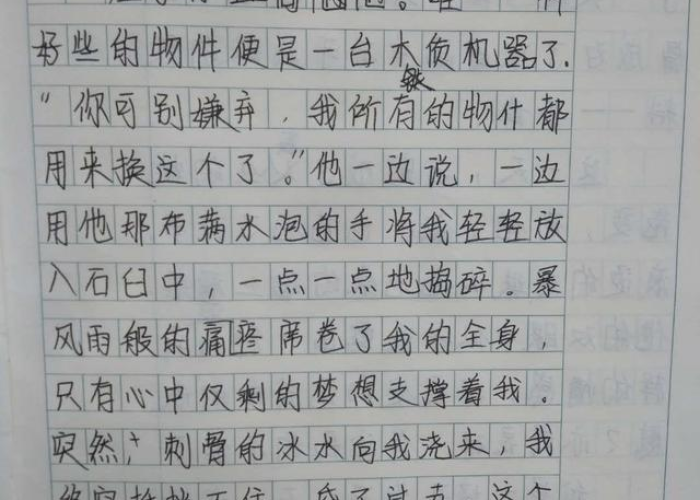 好些的物件便是一台木质机器了.
"你可别嫌弃，我所有的物什都
用来换这个了。"他一边说，一边
用他那布满水泡的手将我轻轻放
入石臼中，一点一点地捣碎。暴
风雨般的痛疼席卷了我的全身，
只有心中仅剩的梦想支撑着我。
突然，刺骨的冰水向我浇来，我